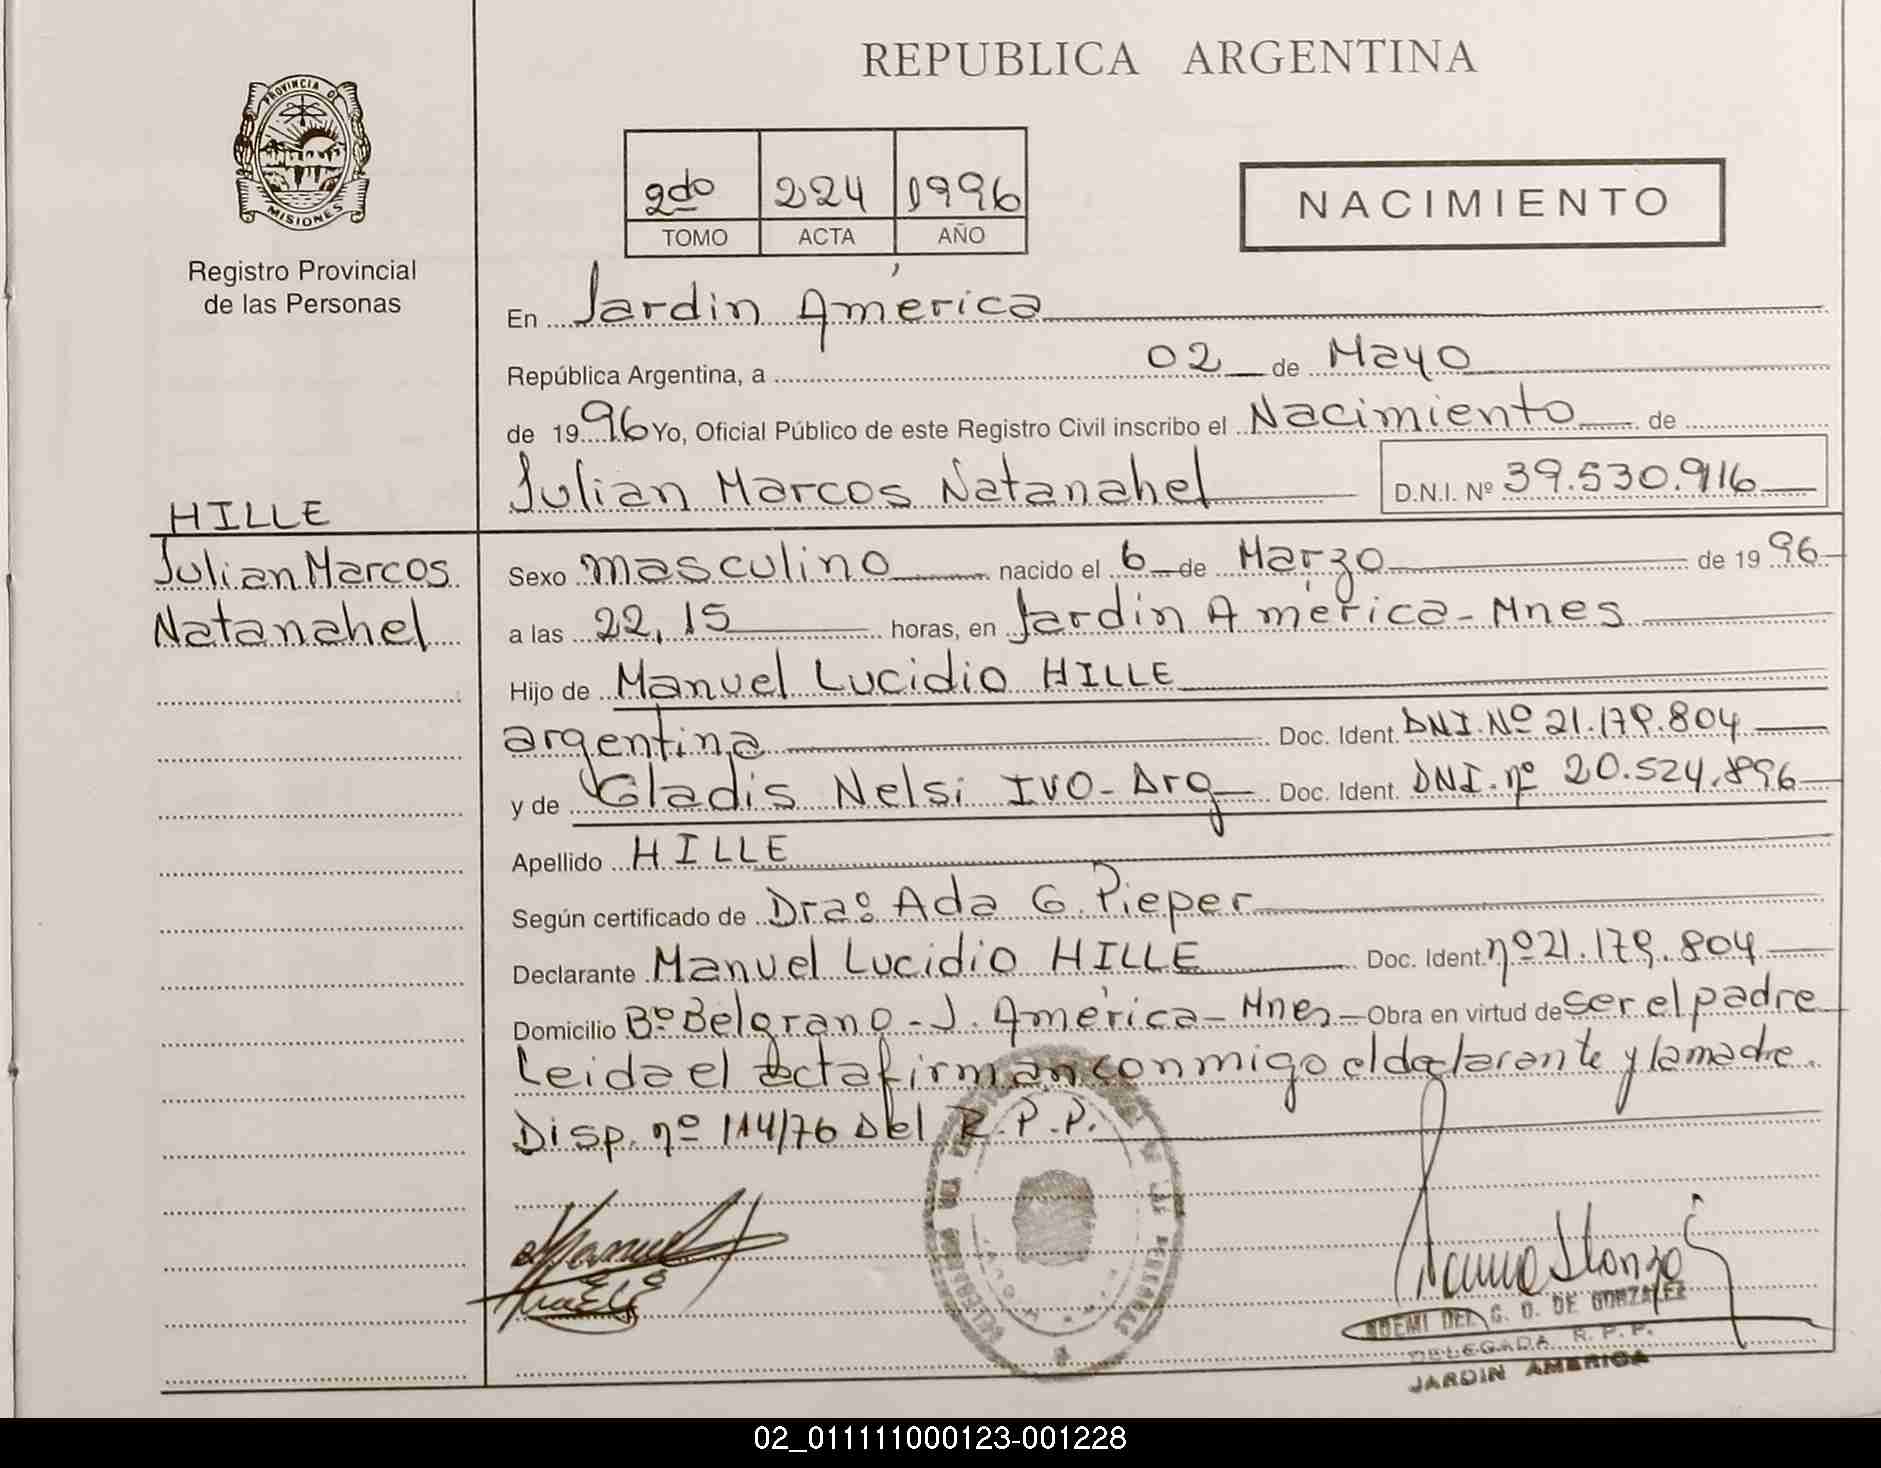 REPUBLICA ARGENTINA
PROVINCIA DE
MISIONES
Registro Provincial
de las Personas
2do 224 1996
TOMO ACTA AÑO
NACIMIENTO
En Jardín América
República Argentina, a 02 de Mayo
de 1996 Yo, Oficial Público de este Registro Civil inscribo el Nacimiento de
Julian Marcos Natanahel D.N.I. Nº 39.530.916
HILLE
Julian Marcos
Natanahel
Sexo masculino nacido el 6 de Marzo de 1996
a las 22,15 horas, en Jardín América - Mnes
Hijo de Manuel Lucidio HILLE
argentina Doc. Ident. DNI.Nº 21.179.804
y de Gladis Nelsi IVO - Arg Doc. Ident. DNI. nº 20.524.896
Apellido HILLE
Según certificado de Dra. Ada G. Pieper
Declarante Manuel Lucidio HILLE Doc. Ident. nº 21.179.804
Domicilio Bº Belgrano - J. América - Mnes - Obra en virtud de ser el padre
Leida el acta firman conmigo el declarante y la madre.
Disp. nº 114/76 Del R.P.P.
NOEMI DEL G. O. DE GONZALEZ
DELEGADA R. P. P.
JARDIN AMERICA
02_011111000123-001228